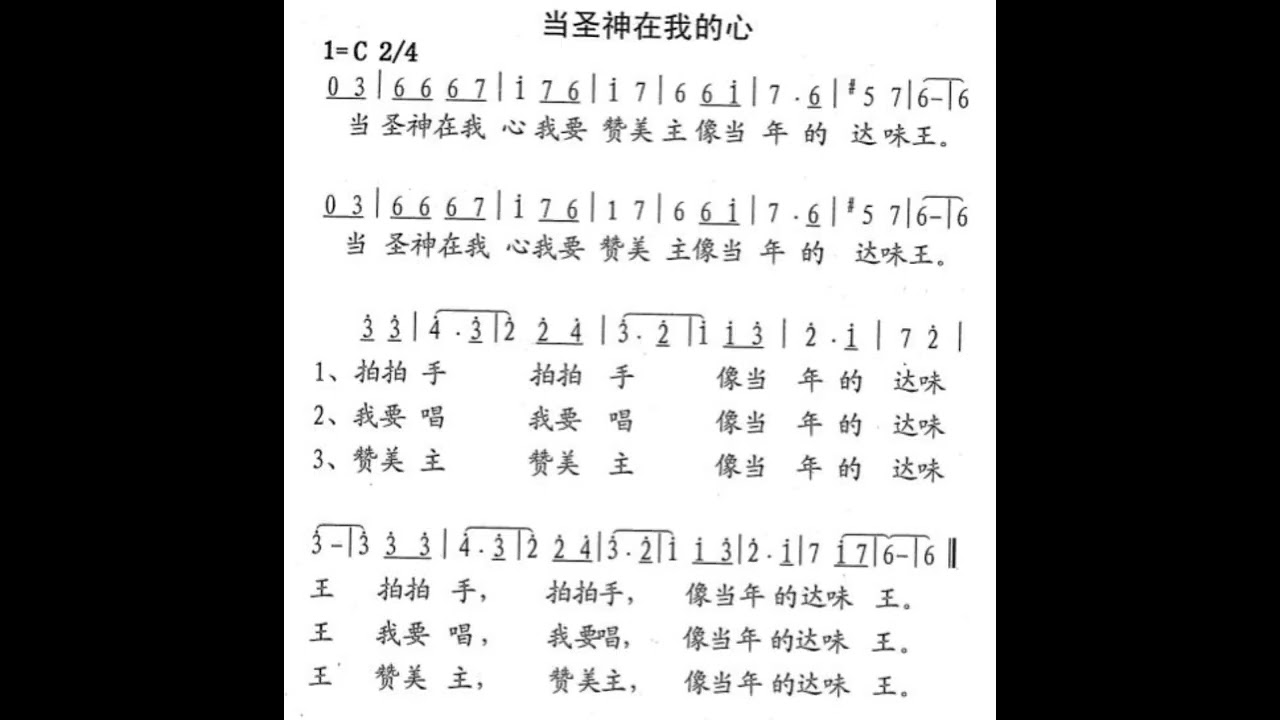 当圣神在我的心
1=C 2/4
0 3 | 6 6 6 7 | i 7 6 | i 7 | 6 6 i | 7 . 6 | #5 7 | 6 – | 6
当 圣神在我 心 我要 赞美 主 像当 年 的 达 味王。
0 3 | 6 6 6 7 | i 7 6 | 1 7 | 6 6 i | 7 . 6 | #5 7 | 6 – | 6
当 圣神在我 心我要 赞美 主像当 年 的 达味王。
3̇ 3̇ | 4̇ . 3̇ | 2̇ 2̇ 4̇ | 3̇ . 2̇ | i i 3̇ | 2̇ . i | 7 2̇ |
1、拍拍 手 拍拍 手 像当 年 的 达味
2、我要 唱 我要 唱 像当 年 的 达味
3、赞美 主 赞美 主 像当 年 的 达味
3̇ – | 3̇ 3̇ 3̇ | 4̇ . 3̇ | 2̇ 2̇ 4̇ | 3̇ . 2̇ | i i 3̇ | 2̇ . i | 7 i 7 | 6 – | 6 ‖
王 拍拍 手， 拍拍手， 像当年 的达味 王。
王 我要 唱， 我要唱， 像当年 的达味 王。
王 赞美 主， 赞美主， 像当年 的达味 王。